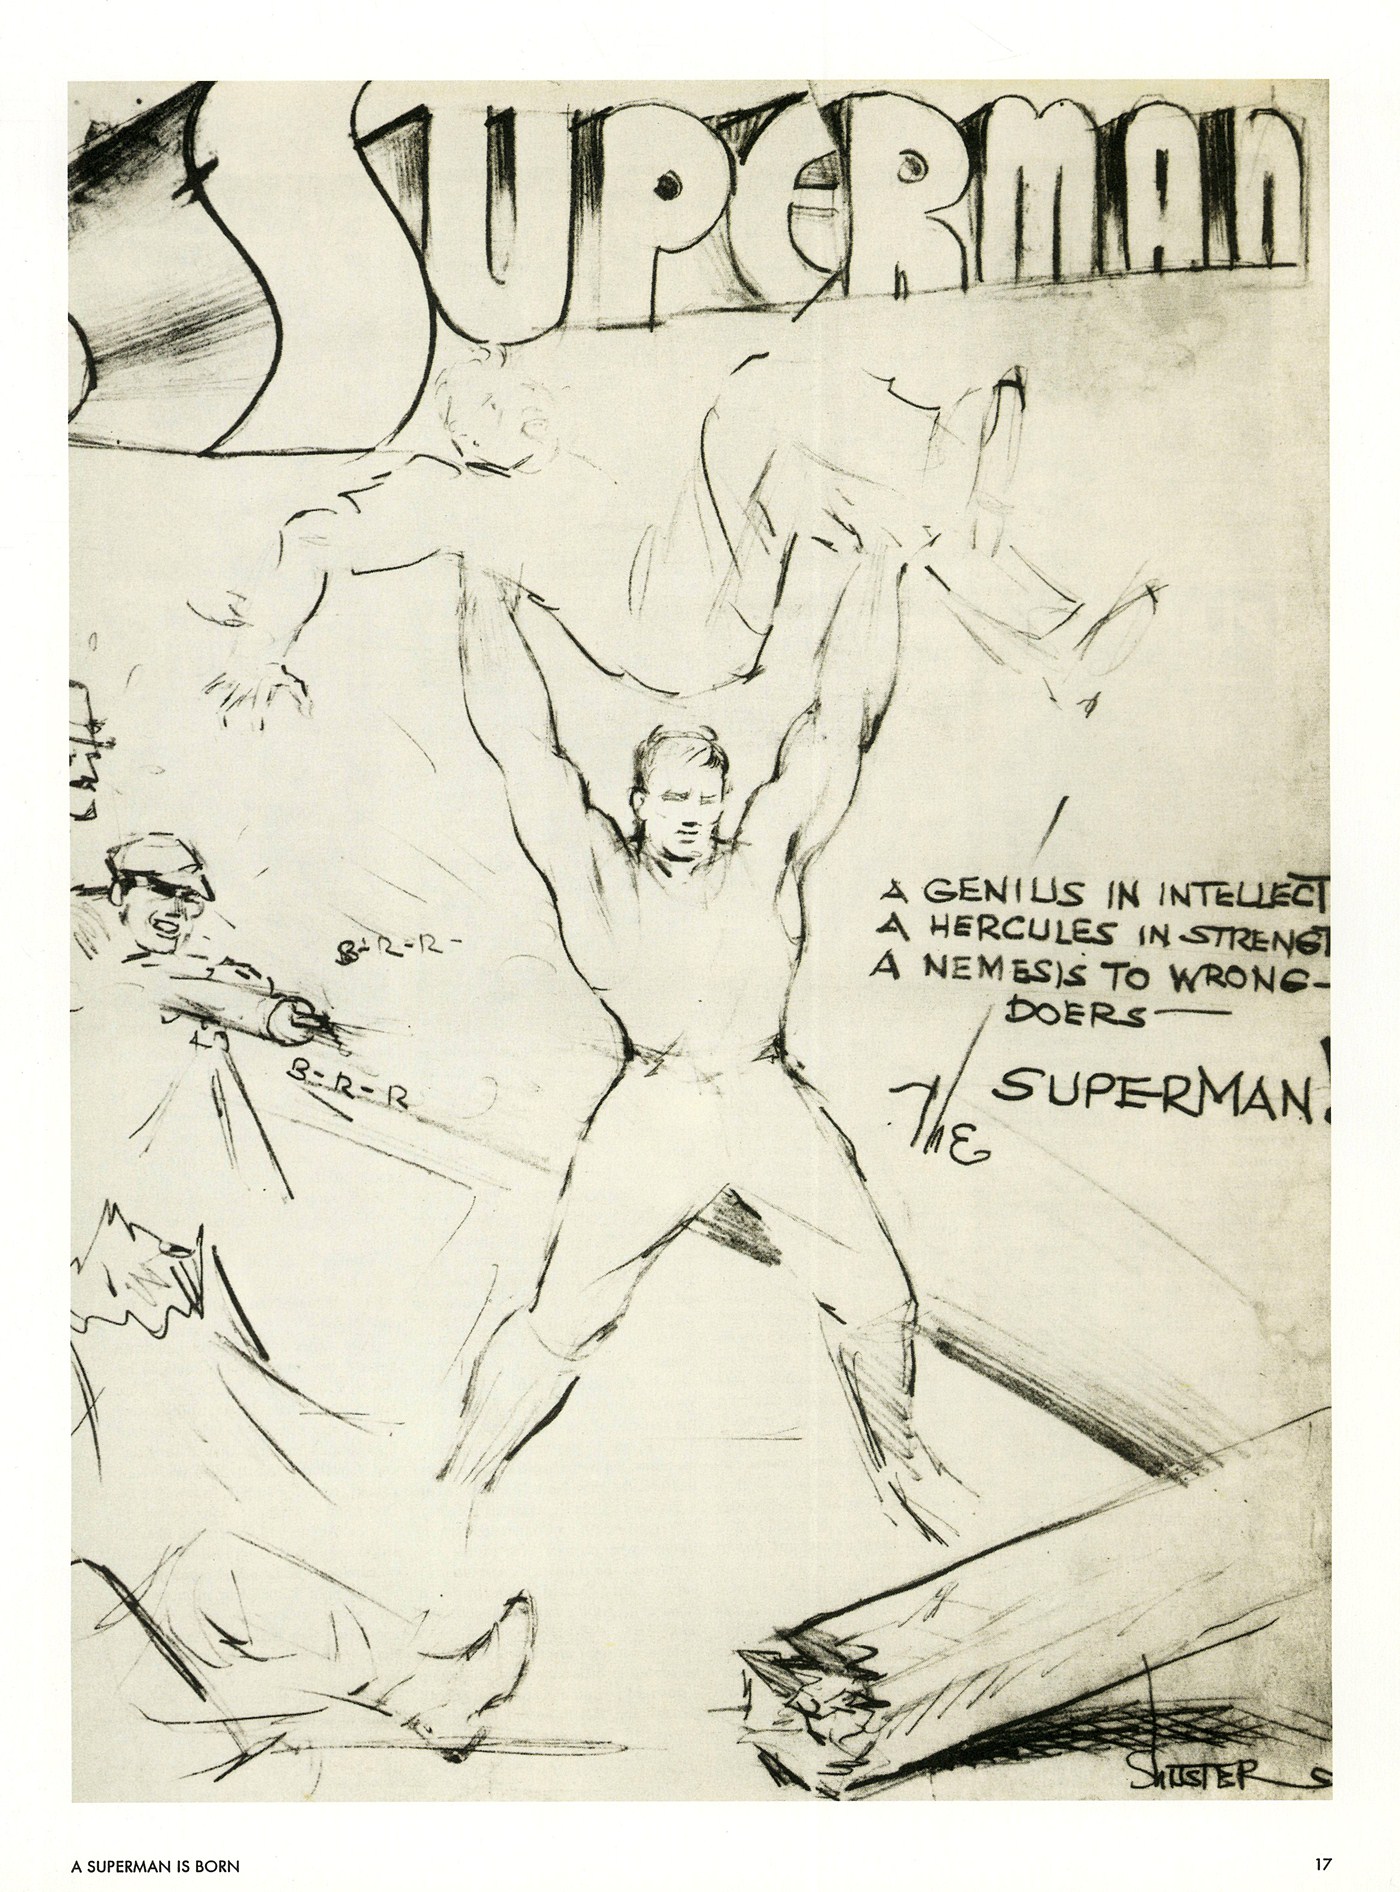 SUPERMAN
B-R-R-
B-R-R
A GENIUS IN INTELLECT
A HERCULES IN STRENGT
A NEMESIS TO WRONG-
DOERS—
THE SUPERMAN!
SHUSTER
A SUPERMAN IS BORN
17